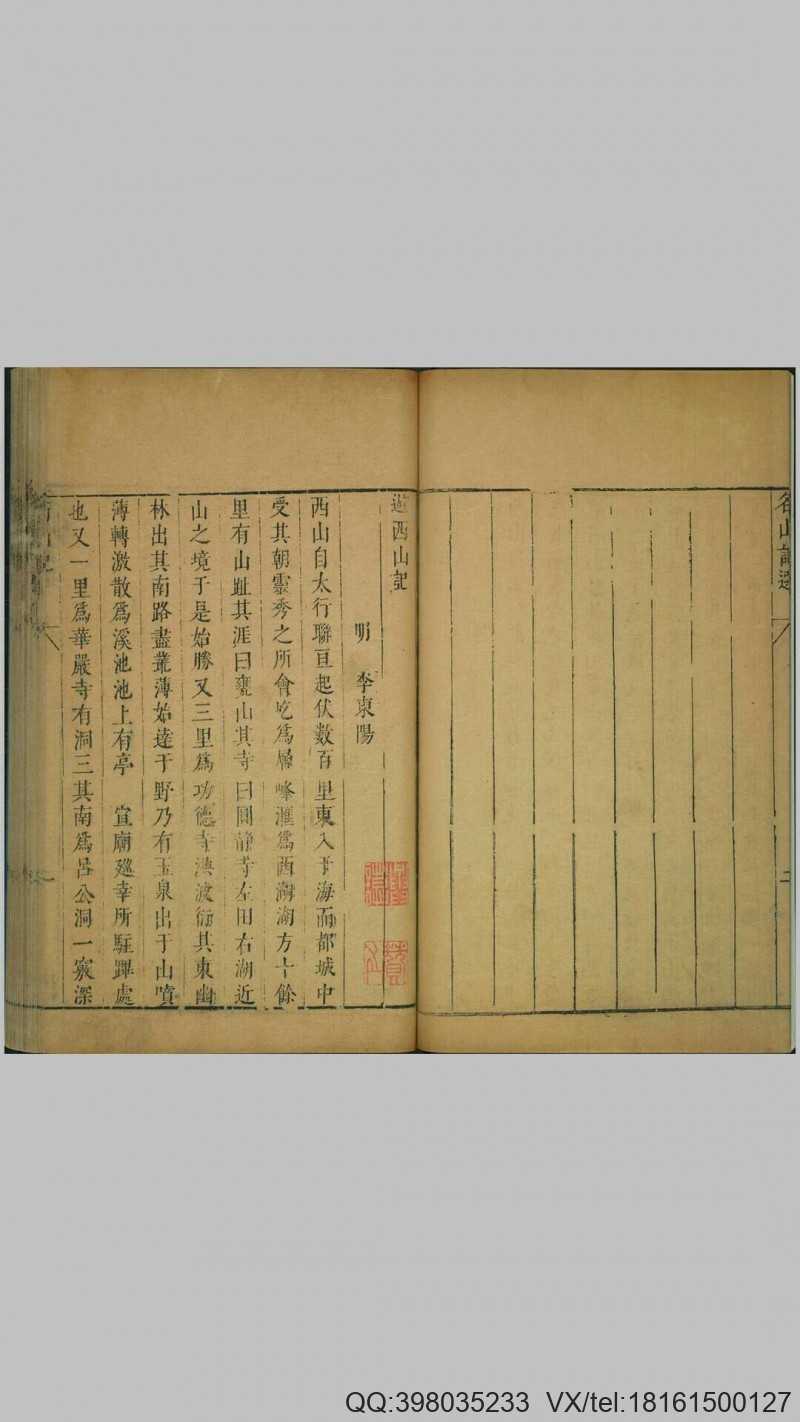 名山記選
二
遊西山記
明 李東陽
西山自太行聯亘起伏數百里東入于海而都城中
受其朝靈秀之所會屹爲層峰滙爲西湖湖方十餘
里有山趾其涯曰甕山其寺曰圓靜寺左田右湖近
山之境于是始勝又三里爲功德寺洪波衍其東幽
林出其南路盡叢薄始達于野乃有玉泉出于山噴
薄轉激散爲溪池池上有亭 宣廟廵幸所駐蹕處
也又一里爲華嚴寺有洞三其南爲呂公洞一竅深
QQ:398035233 VX/tel:18161500127